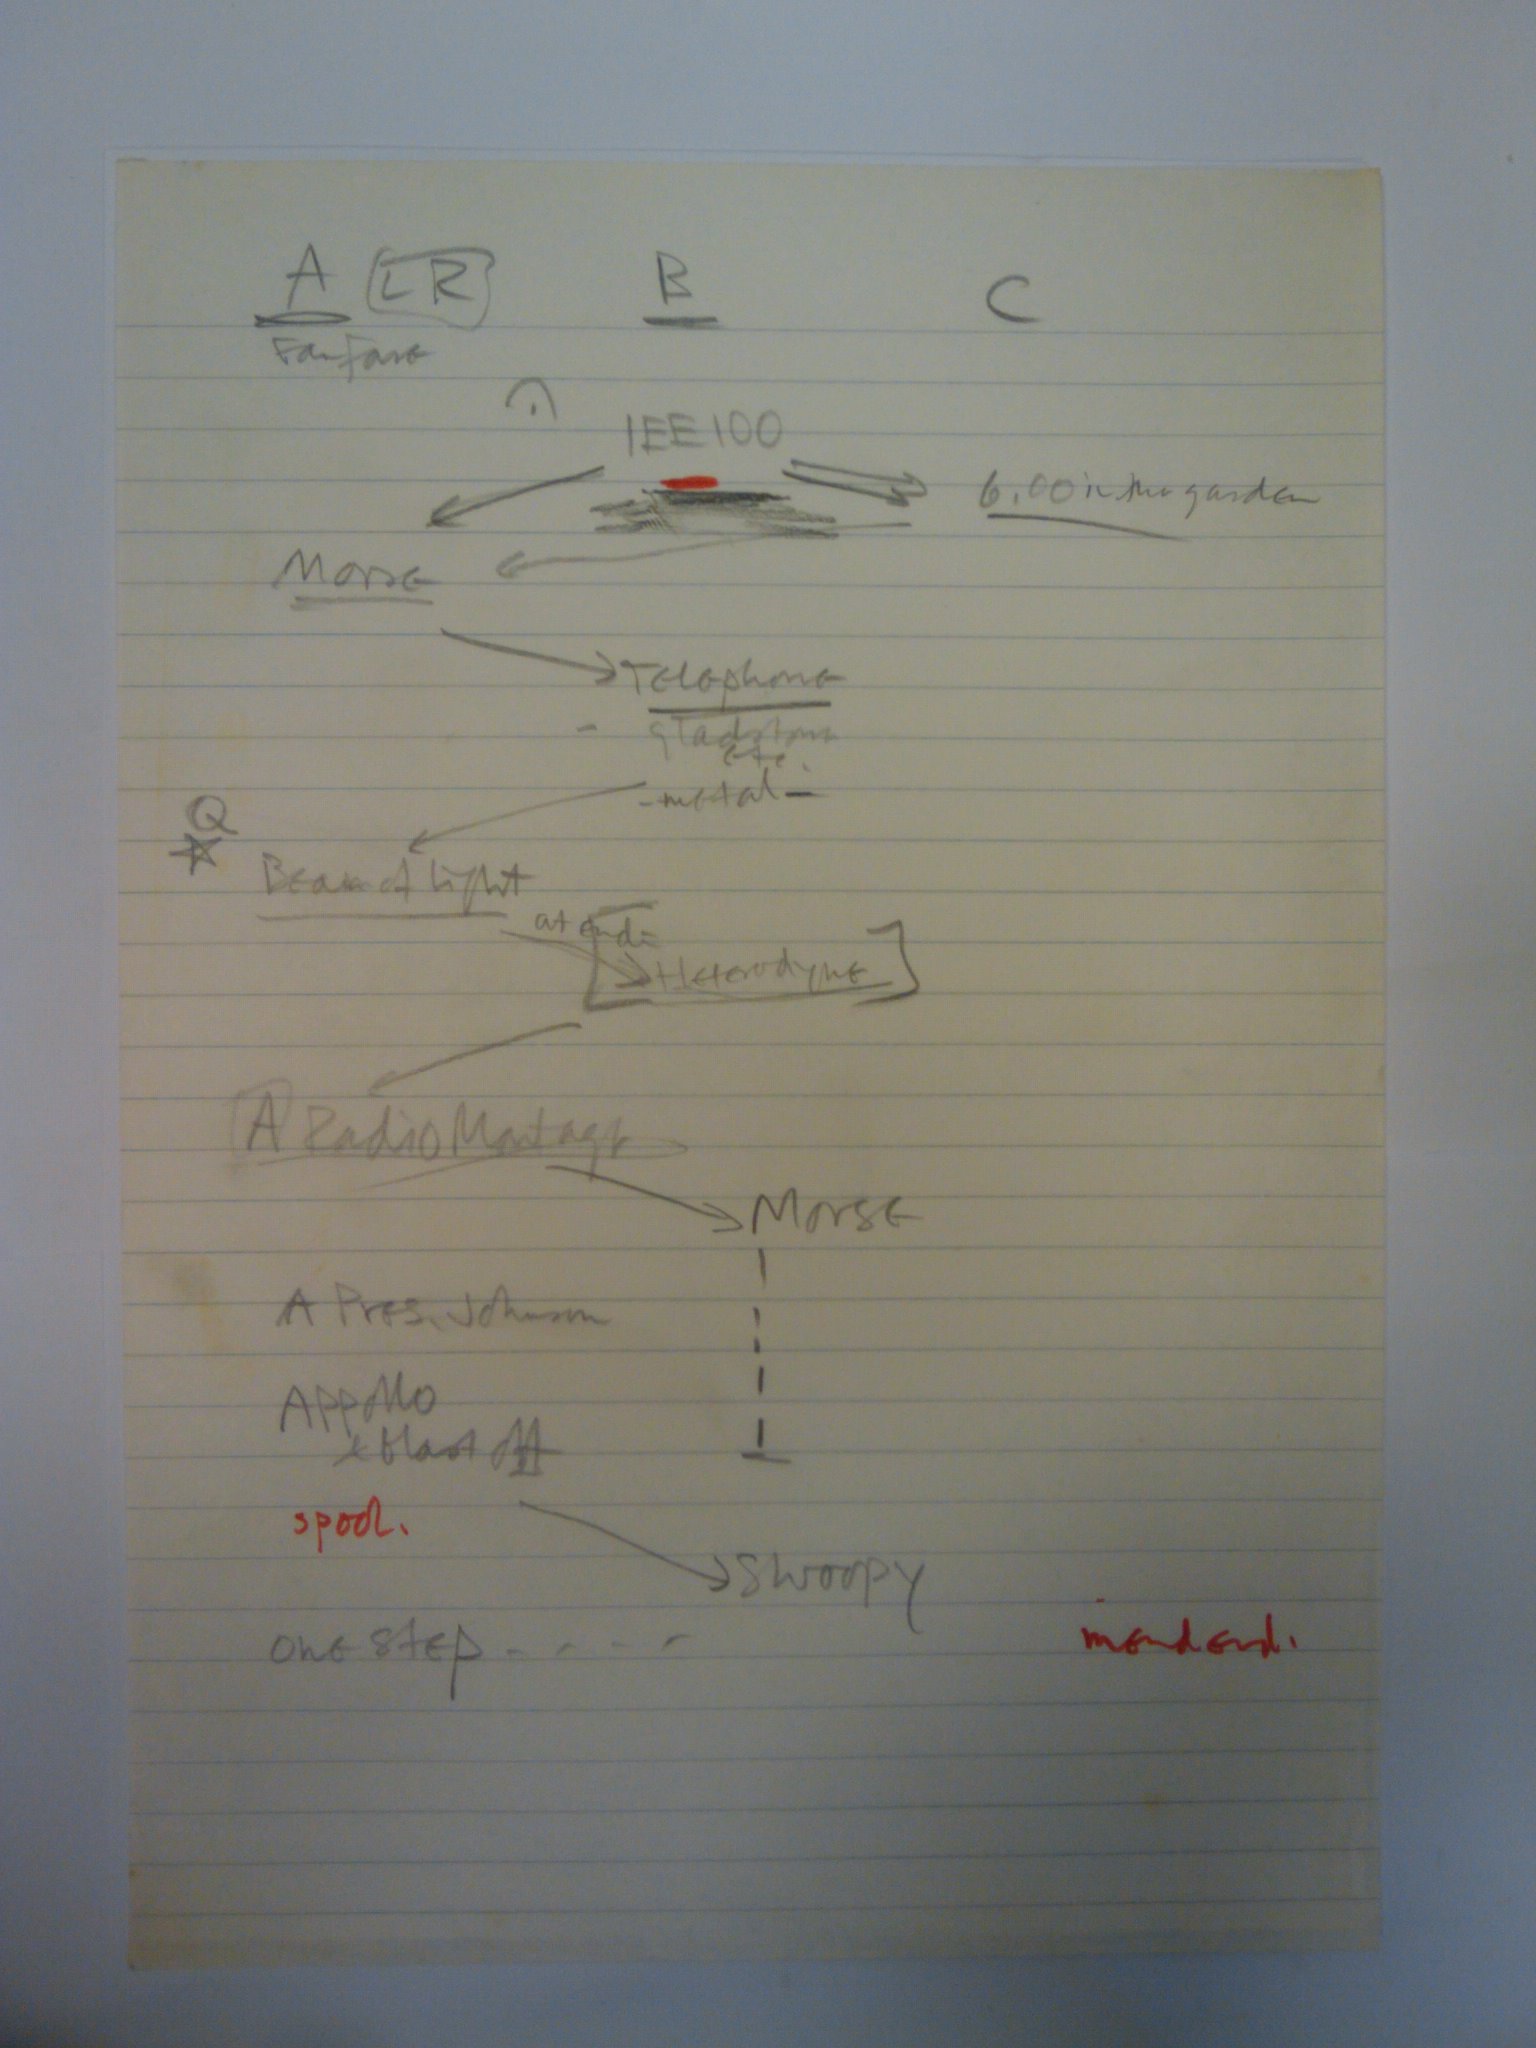 A LR B C
Fanfare
IEE100
6.00 in the garden
Morse
Telephone
gladstone
etc.
-metal-
Q
Beam of light
at end:
Heterodyne
A Radio Montage
Morse
A Pres. Johnson
Appollo
& blast off
spool.
Swoopy
one step - - - -